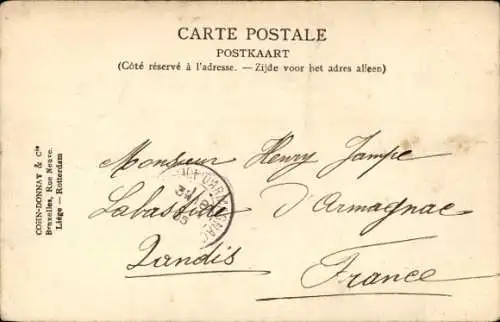 CARTE POSTALE
POSTKAART
(Côté réservé à l'adresse. — Zijde voor het adres alleen)
COHN-DONNAY & Cie
Bruxelles, Rue Neuve.
Liége — Rotterdam
Monsieur Henry Jampe
Labastide D'Armagnac
Landis
France